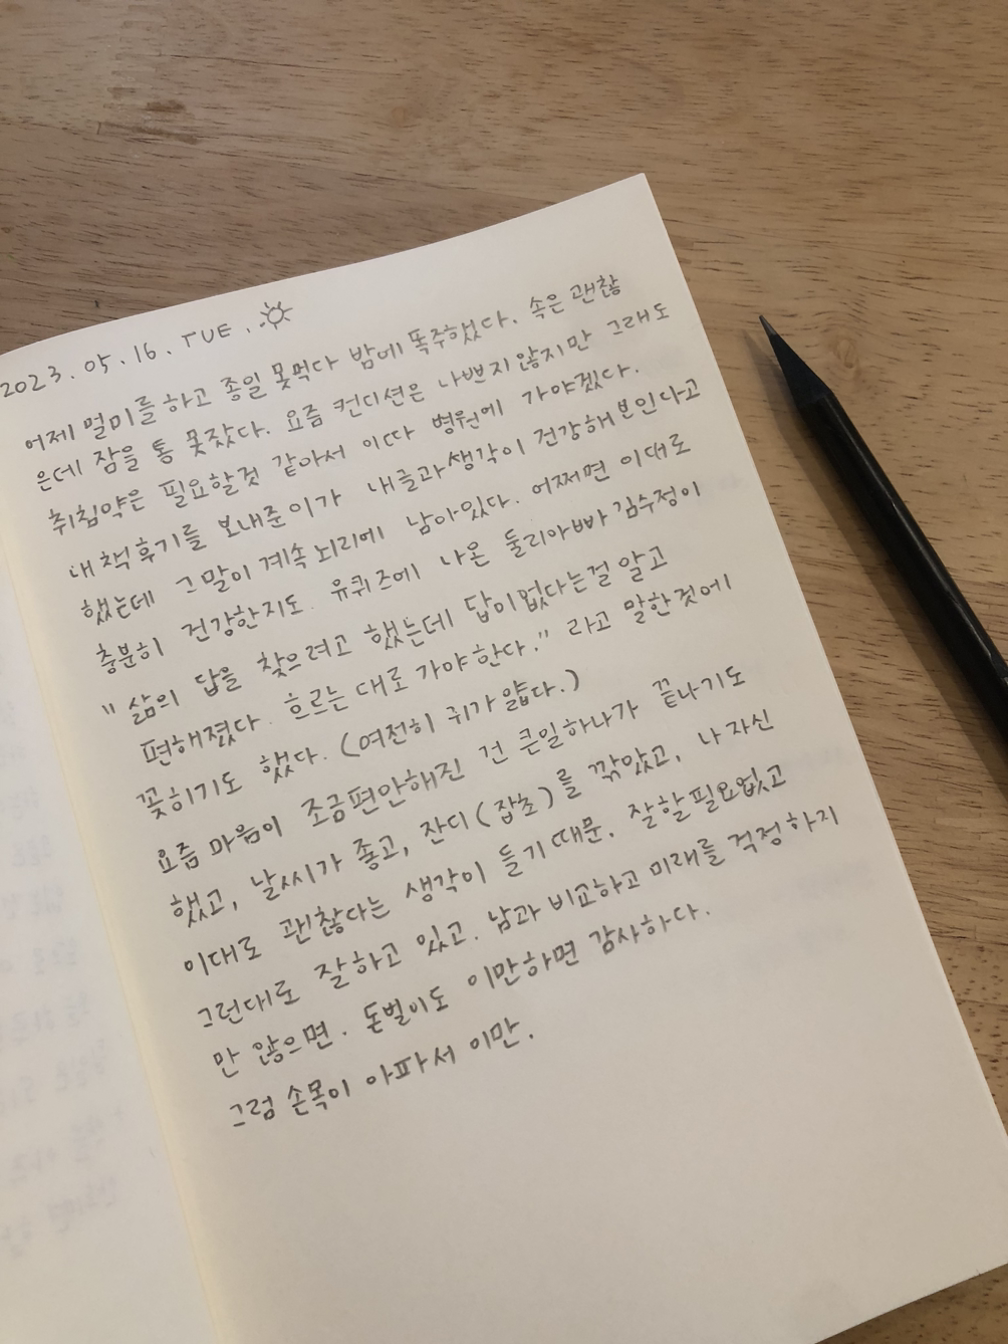 2023. 05. 16. TUE.
어제 멀미를 하고 종일 못먹다 밤에 폭주했다. 속은 괜찮
은데 잠을 통 못잤다. 요즘 컨디션은 나쁘지 않지만 그래도
취침약은 필요할것 같아서 이따 병원에 가야겠다.
내 책 후기를 보내준 이가 내글과 생각이 건강해보인다고
했는데 그말이 계속 뇌리에 남아있다. 어쩌면 이대로
충분히 건강한지도. 유퀴즈에 나온 둘리아빠 김수정이
"삶의 답을 찾으려고 했는데 답이없다는걸 알고
편해졌다. 흐르는 대로 가야한다." 라고 말한것에
꽂히기도 했다. (여전히 귀가 얇다.)
요즘 마음이 조금편안해진 건 큰일하나가 끝나기도
했고, 날씨가 좋고, 잔디(잡초)를 깎았고, 나 자신
이대로 괜찮다는 생각이 들기 때문. 잘할필요없고
그런대로 잘하고 있고. 남과 비교하고 미래를 걱정하지
만 않으면. 돈벌이도 이만하면 감사하다.
그럼 손목이 아파서 이만.